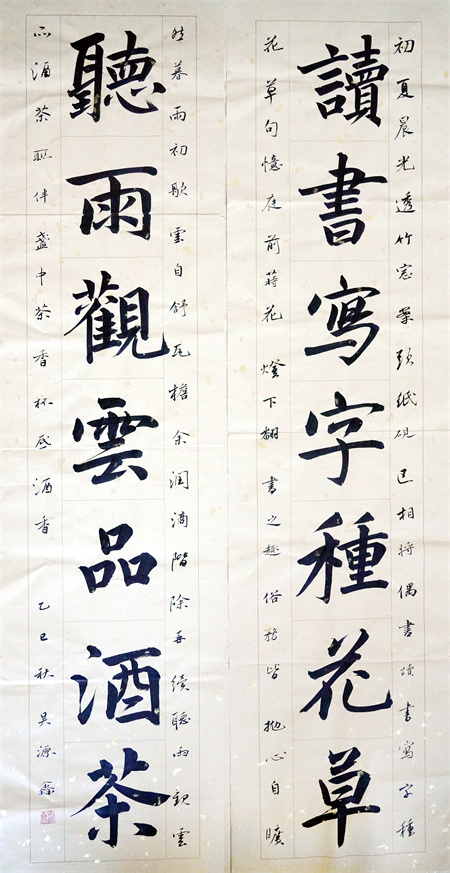 初夏晨光透竹窓案頭紙硯已相將偶書读書寫字種
讀書寫字種花草
花草句憶庭前蒔花燈下翻書之趣俗務皆拋心自曠
然暮雨初歇雲自舒瓦檐余润滴階除再續聽雨観雲
聽雨觀雲品酒茶
品酒茶联伴盞中茶香杯底酒香 乙巳秋吴源鑫